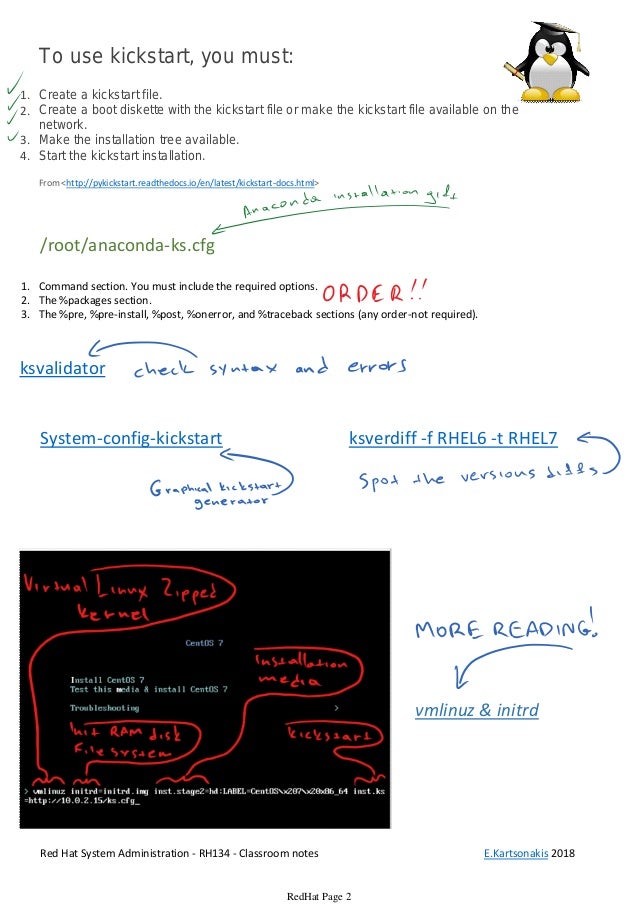 To use kickstart, you must:
1. Create a kickstart file.
2. Create a boot diskette with the kickstart file or make the kickstart file available on the
network.
3. Make the installation tree available.
4. Start the kickstart installation.
From <http://pykickstart.readthedocs.io/en/latest/kickstart-docs.html>
Anaconda installation gift
/root/anaconda-ks.cfg
1. Command section. You must include the required options.
2. The %packages section.
ORDER!!
3. The %pre, %pre-install, %post, %onerror, and %traceback sections (any order-not required).
ksvalidator check syntax and errors
System-config-kickstart
ksverdiff -f RHEL6 -t RHEL7
Graphical kickstart
generator
Spot the versions diffs
Virtual Linux Zipped
kernel
CentOS 7
Install CentOS 7
Test this media & install CentOS 7
Troubleshooting >
installation
media
Init RAM disk
File system
kickstart
> vmlinuz initrd=initrd.img inst.stage2=hd:LABEL=CentOS\x207\x20x86_64 inst.ks
=http://10.0.2.15/ks.cfg_
MORE READING!
vmlinuz & initrd
Red Hat System Administration - RH134 - Classroom notes
E.Kartsonakis 2018
RedHat Page 2